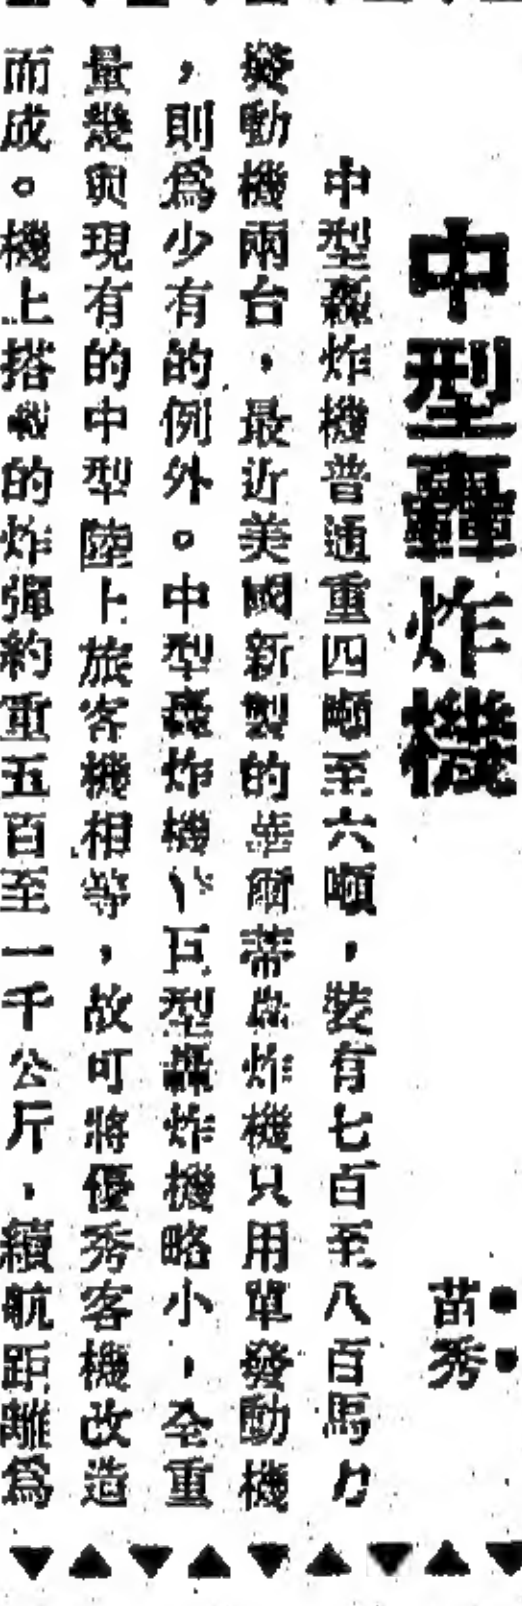 中型轟炸機
苗秀
中型轟炸機普通重四噸至六噸，裝有七百至八百馬力
發動機兩台，最近美國新製的華爾蒂轟炸機只用單發動機
，則爲少有的例外。中型轟炸機比巨型轟炸機略小，全重
量幾與現有的中型陸上旅客機相等，故可將優秀客機改造
而成。機上搭載的炸彈約重五百至一千公斤，續航距離爲